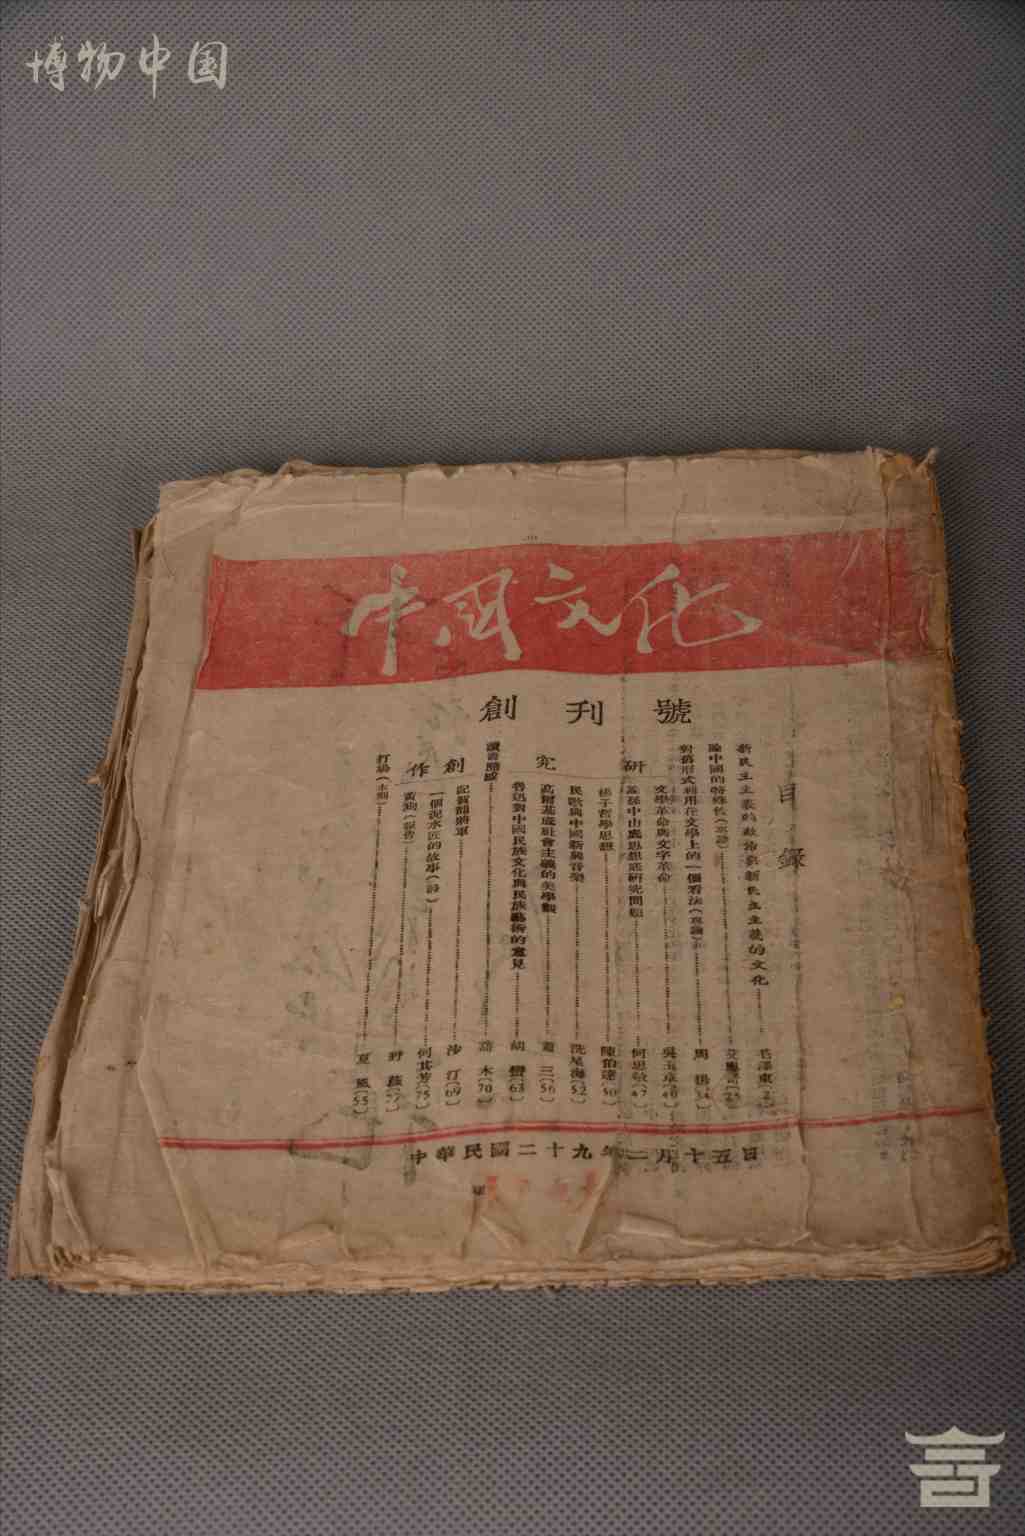 博物中国
中国文化
創刊號
目錄
新民主主義的政治與新民主主義的文化……毛澤東(2)
論中國的特殊性(專論)……艾思奇(25)
對舊形式利用在文學上的一個看法(專論)……周揚(34)
研究
文學革命與文字革命……吳玉章(40)
論孫中山底思想底研究問題……何思敬(47)
楊子哲學思想……陳伯達(50)
民歌與中國新興音樂……冼星海(52)
高爾基底社會主義的美學觀……蕭三(56)
魯迅對中國民族文化與民族藝術的意見……胡蠻(63)
讀書隨感……茄木(70)
創作
記賀龍將軍……沙汀(69)
一個泥水匠的故事(詩)……何其芳(75)
黃河(報告)……野蕻(77)
打場(木刻)……夏風(55)
中華民國二十九年二月十五日